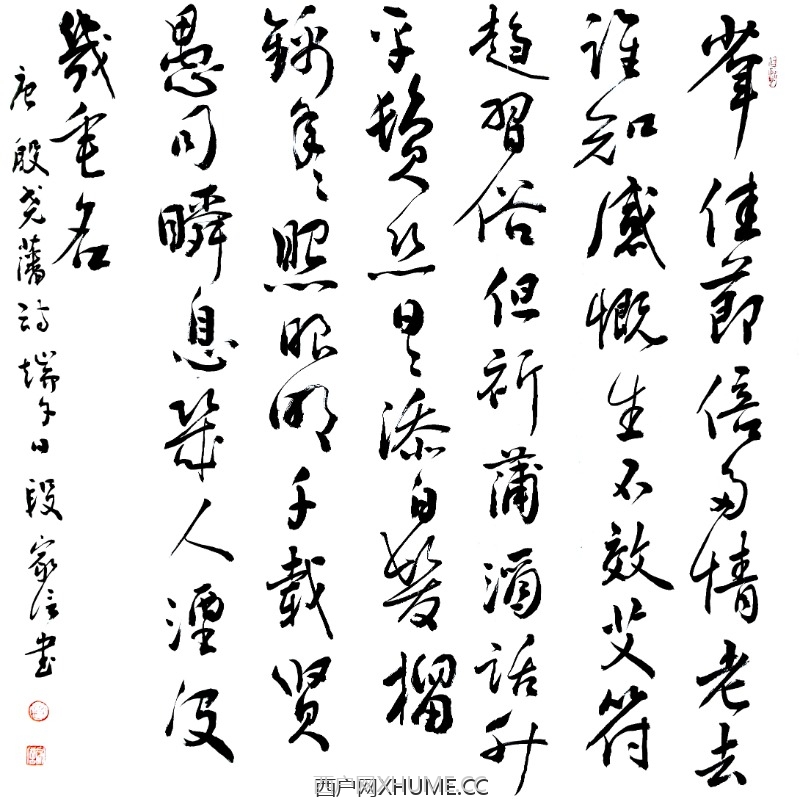 少年佳節倍多情老去
誰知感慨生不效艾符
趨習俗但祈蒲酒話升
平鬓丝日〻添白髮榴
錦年〻照眼明千載賢
愚同瞬息幾人湮没
幾垂名
唐 殷尧藩詩 端午日 段家信書
西户网XHUME.CC